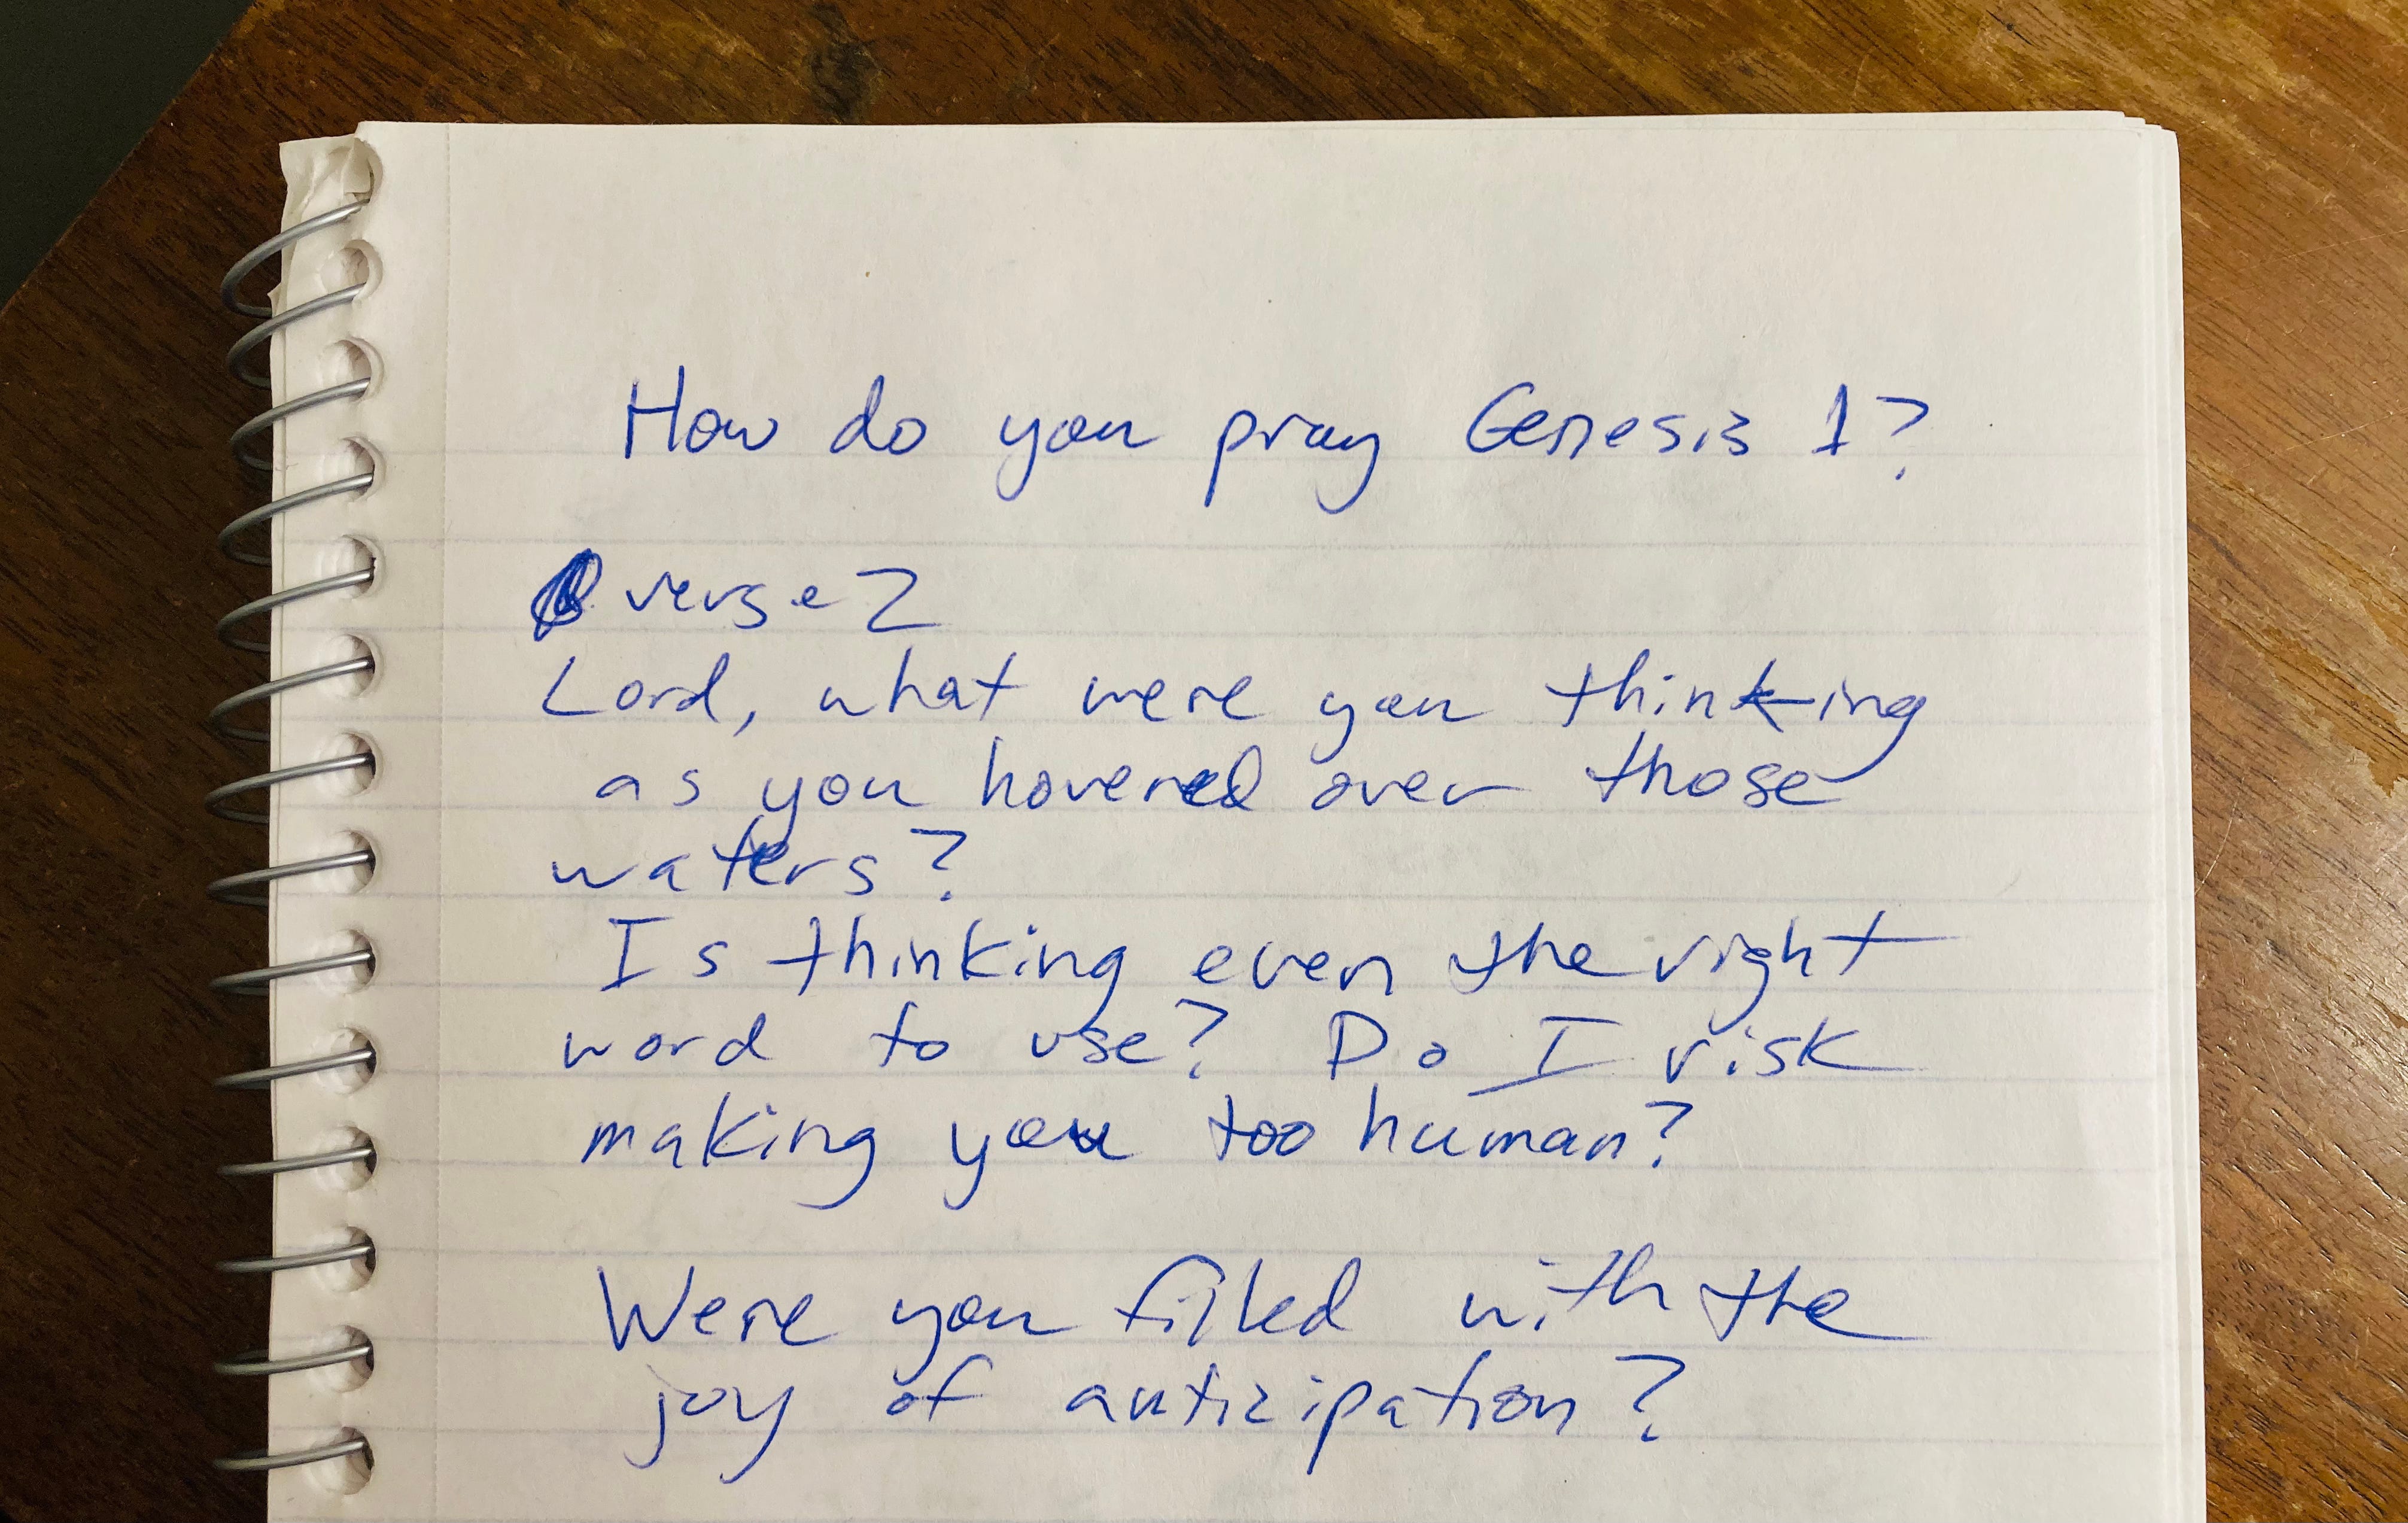 How do you pray Genesis 1?
verse 2
Lord, what were you thinking
as you hovered over those
waters?
Is thinking even the right
word to use? Do I risk
making you too human?
Were you filled with the
joy of anticipation?